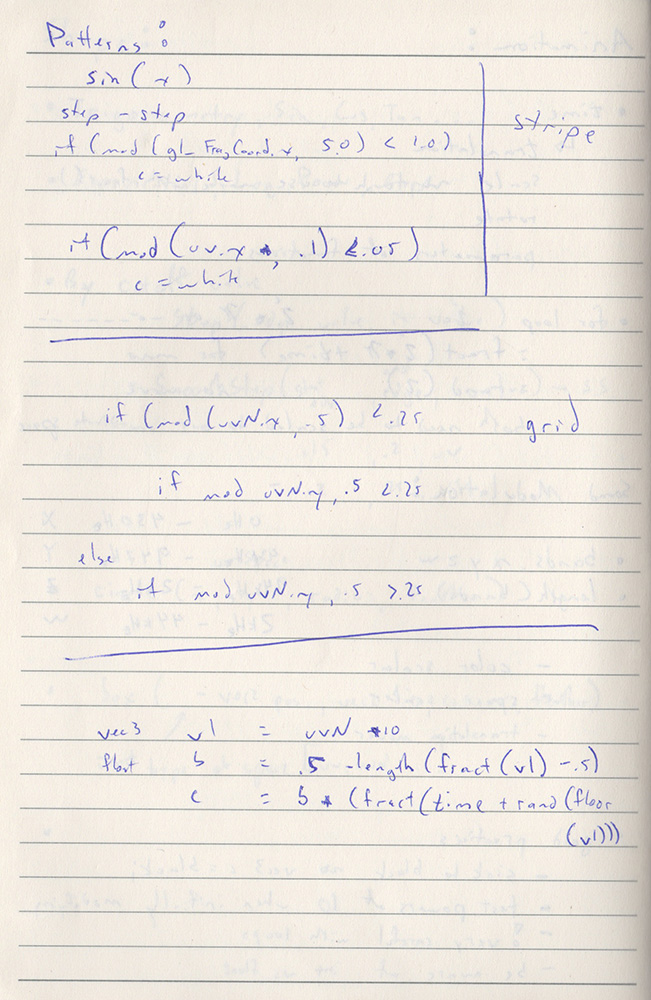 Patterns :
sin(x)
step - step
stripe
if (mod (gl_FragCoord.x, 5.0) < 1.0)
c = white
if (mod (uv.x , .1) <.05)
c = white
if (mod (uvN.x, .5) < .25
grid
if mod uvN.y, .5 <.25
else
if mod uvN.y, .5 >.25
vec3 v1 = uvN *10
float b = .5 -length (fract (v1) -.5)
c = b * (fract (time + rand (floor
(v1)))